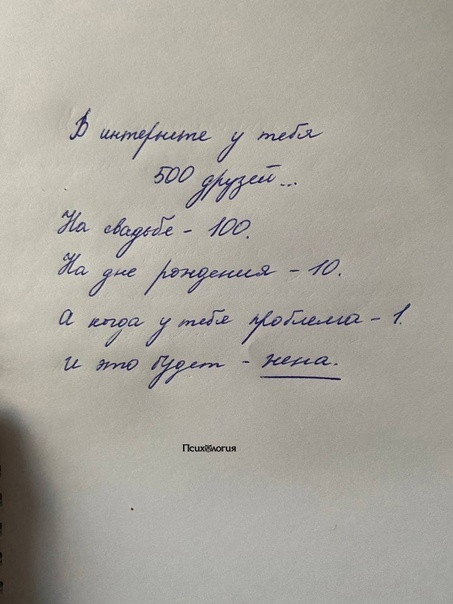 В интернете у тебя
500 друзей...
На свадьбе - 100.
На дне рождения - 10.
А когда у тебя проблема - 1.
И это будет - жена.
Психология